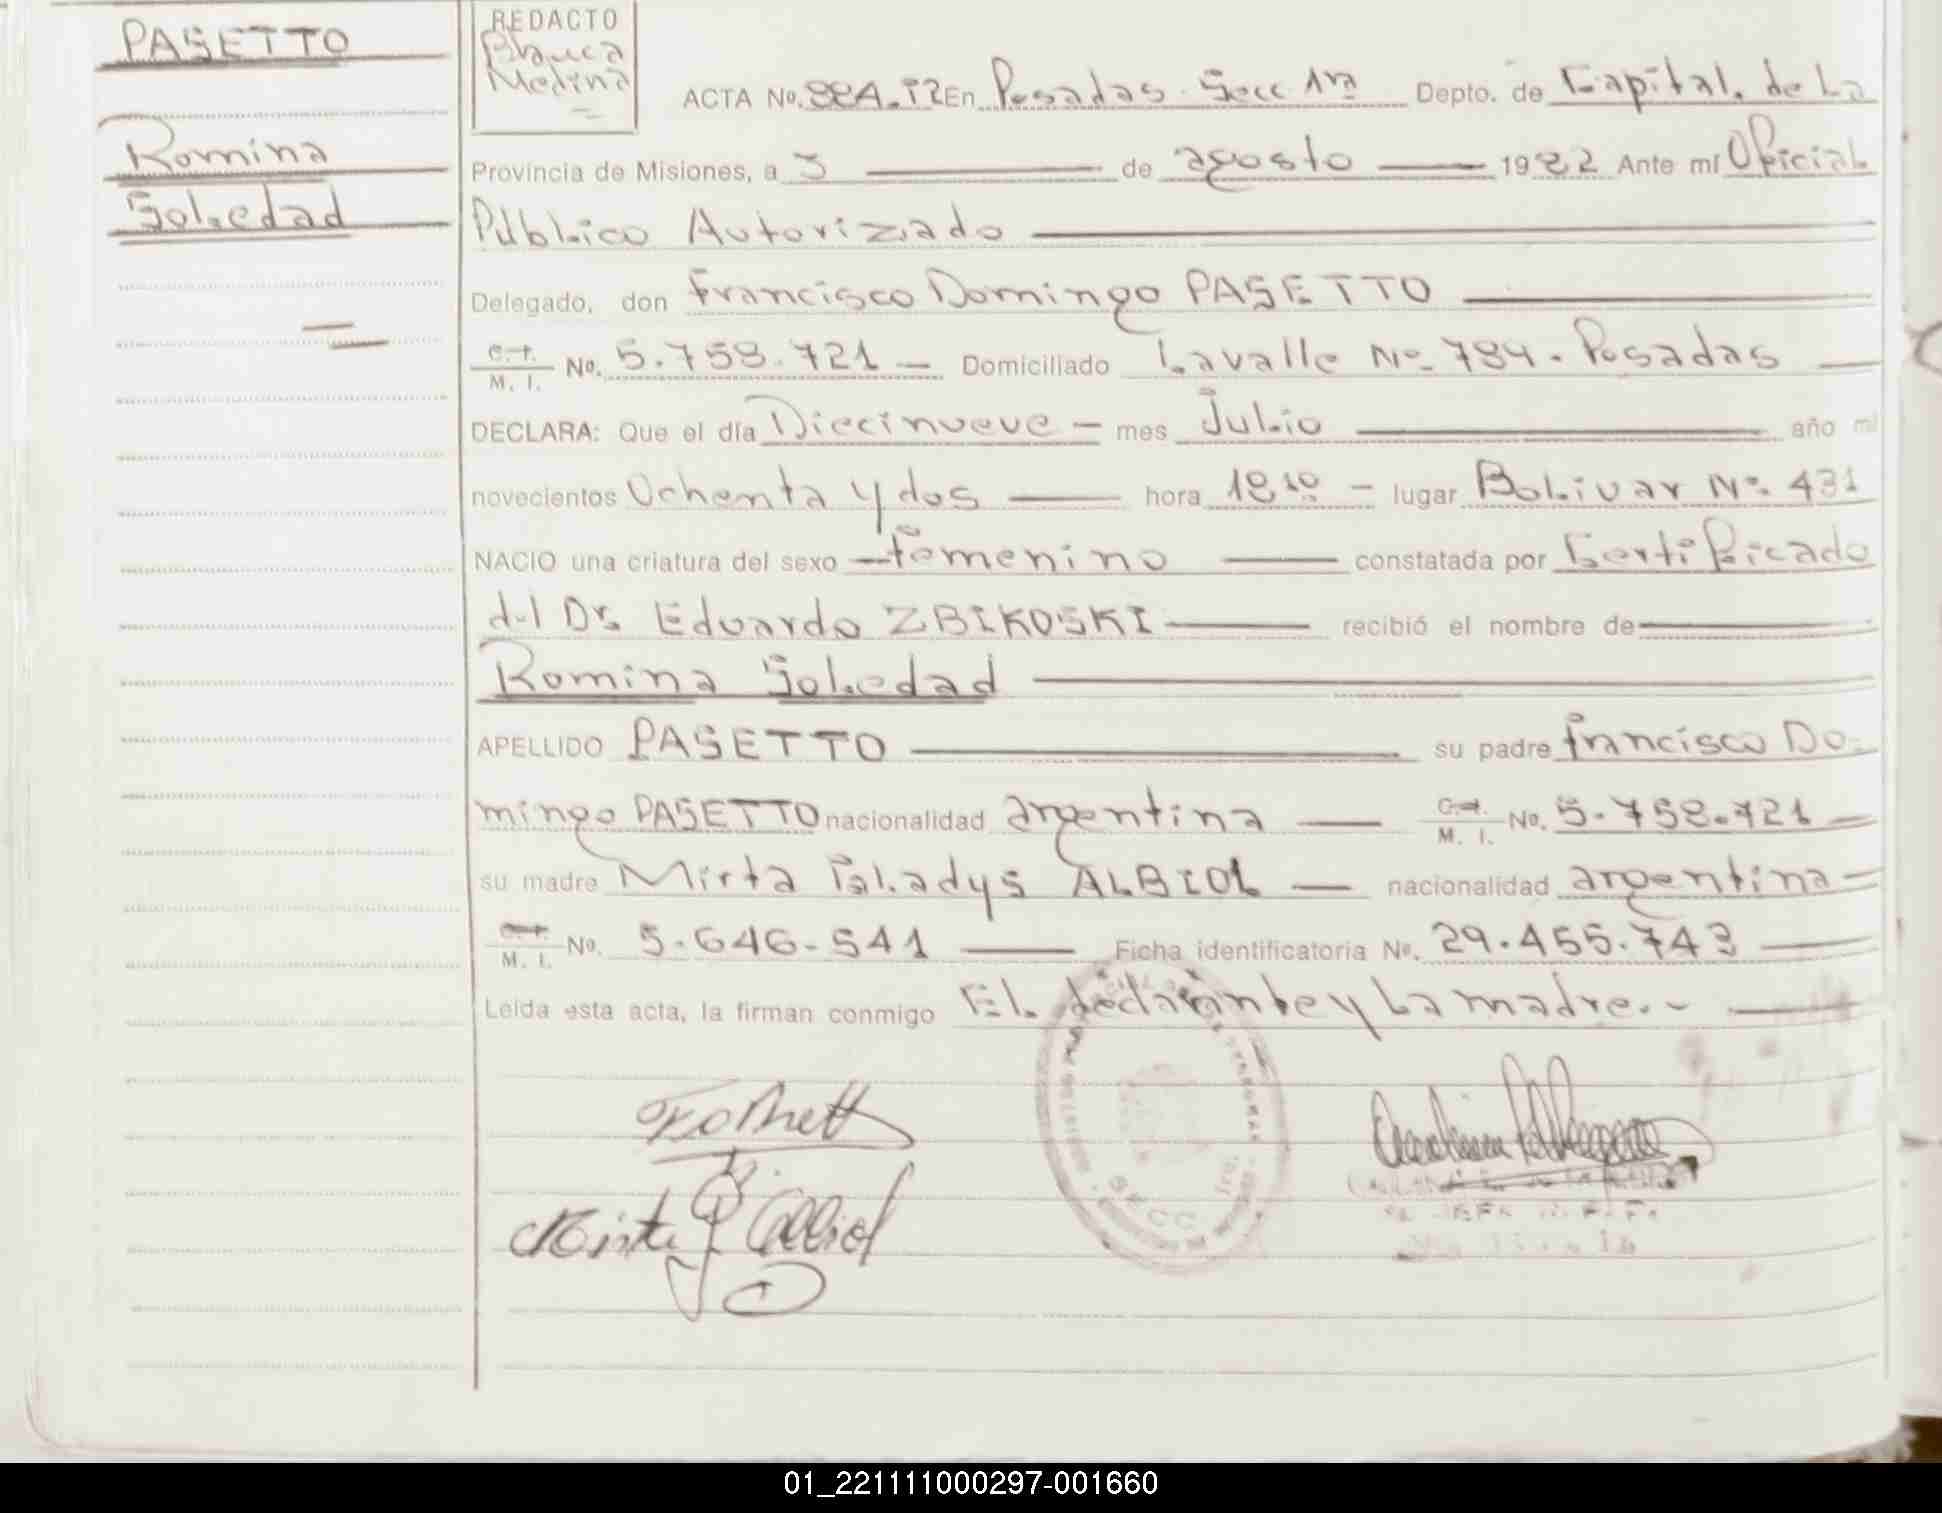 PASETTO
Romina
Soledad
REDACTO
Blanca
Medina
ACTA No. 884.T2 En Posadas Secc 1ra Depto. de Capital. de La
Provincia de Misiones, a 3 de agosto 1982 Ante mí Oficial
Público Autorizado
Delegado, don Francisco Domingo PASETTO
M. I. No. 5.758.721 Domiciliado Lavalle No 784. Posadas
DECLARA: Que el día Diecinueve mes Julio año mil
novecientos Ochenta y dos hora 18 10 lugar Bolivar No. 431
NACIO una criatura del sexo Femenino constatada por Certificado
del Dr. Eduardo ZBIKOSKI recibió el nombre de
Romina Soledad
APELLIDO PASETTO su padre Francisco Do-
mingo PASETTO nacionalidad argentina M. I. No. 5.758.721
su madre Mirta Gladys ALBIOL nacionalidad argentina
M. I. No. 5.646.541 Ficha identificatoria No. 29.455.743
Leída esta acta, la firman conmigo El declarante y La madre.-
Mirta G Albiol
SECC 1ra.
01_221111000297-001660